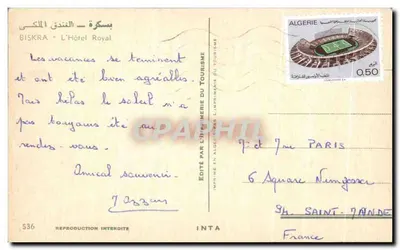 بسكرة - الفندق الملكي
BISKRA - L'Hôtel Royal
Les vacances se terminent
et ont été bien agréables.
Mais hélas le soleil n'a
pas toujours été au
rendez-vous.
Amical souvenir.
536
REPRODUCTION INTERDITE
EDITÉ PAR L'IMPRIMERIE DU TOURISME
INTA
ALGERIE
0,50
CPAPHIL.COM
Mr et Mme PARIS
6 Square Nungesser
94. SAINT-MANDE
France